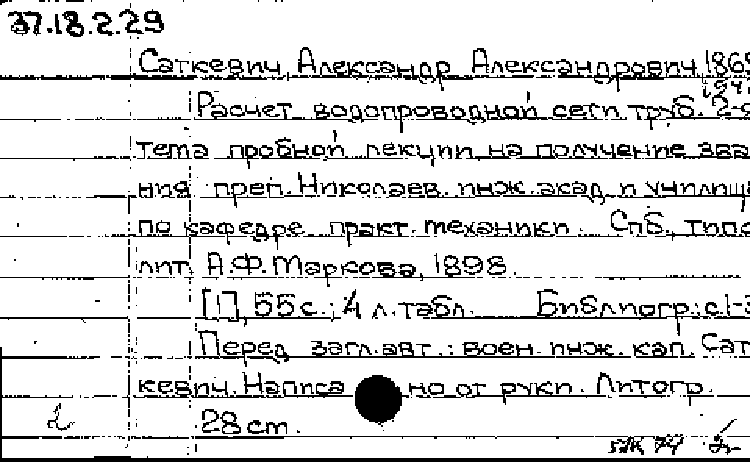 37.18.2.29
Саткевич, Александр Александрович, 1869
Расчет водопроводной сети труб. 2-я
тема пробной лекции на получение зва-
ния преп. Николаев. инж. акад. и училища
по кафедре практ. механики. Спб., типо-
лит. А.Ф. Маркова, 1898.
[1], 55 с.; 4 л. табл. Библиогр.: с.
Перед загл. авт.: воен. инж. кап. Сат-
кевич. Написано от руки. Литогр.
2
28 cm.